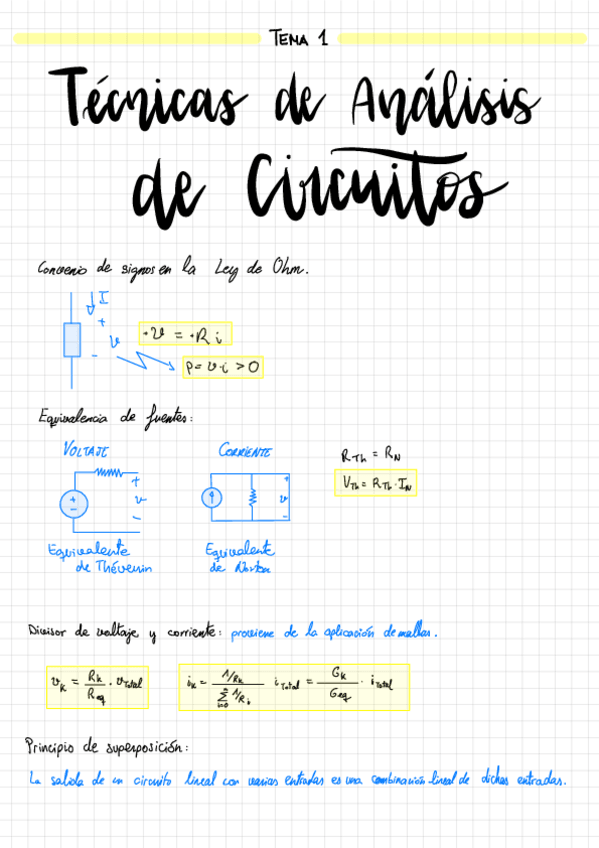 TEMA 1
Técnicas de Análisis
de Circuitos
Convenio de signos en la Ley de Ohm.
I
+
v
-
+v = +R i
P = v·i > 0
Equivalencia de fuentes:
VOLTAJE
CORRIENTE
R_Th = R_N
V_Th = R_Th · I_N
+
v
-
+
-
+
v
-
Equivalente
de Thévenin
Equivalente
de Norton
Divisor de voltaje y corriente: proviene de la aplicación de mallas.
v_k = R_k / R_eq · v_Total
i_k = (1/R_k) / (∑_{i=0}^{n} 1/R_i) i_Total = G_k / G_eq · i_Total
Principio de superposición:
La salida de un circuito lineal con varias entradas es una combinación lineal de dichas entradas.